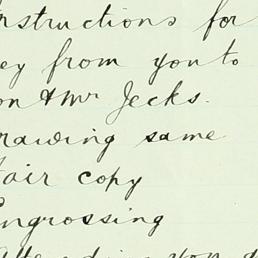 nstructions for
ey from you to
on & Mr Jecks.
rawing same
Fair copy
Engrossing
you